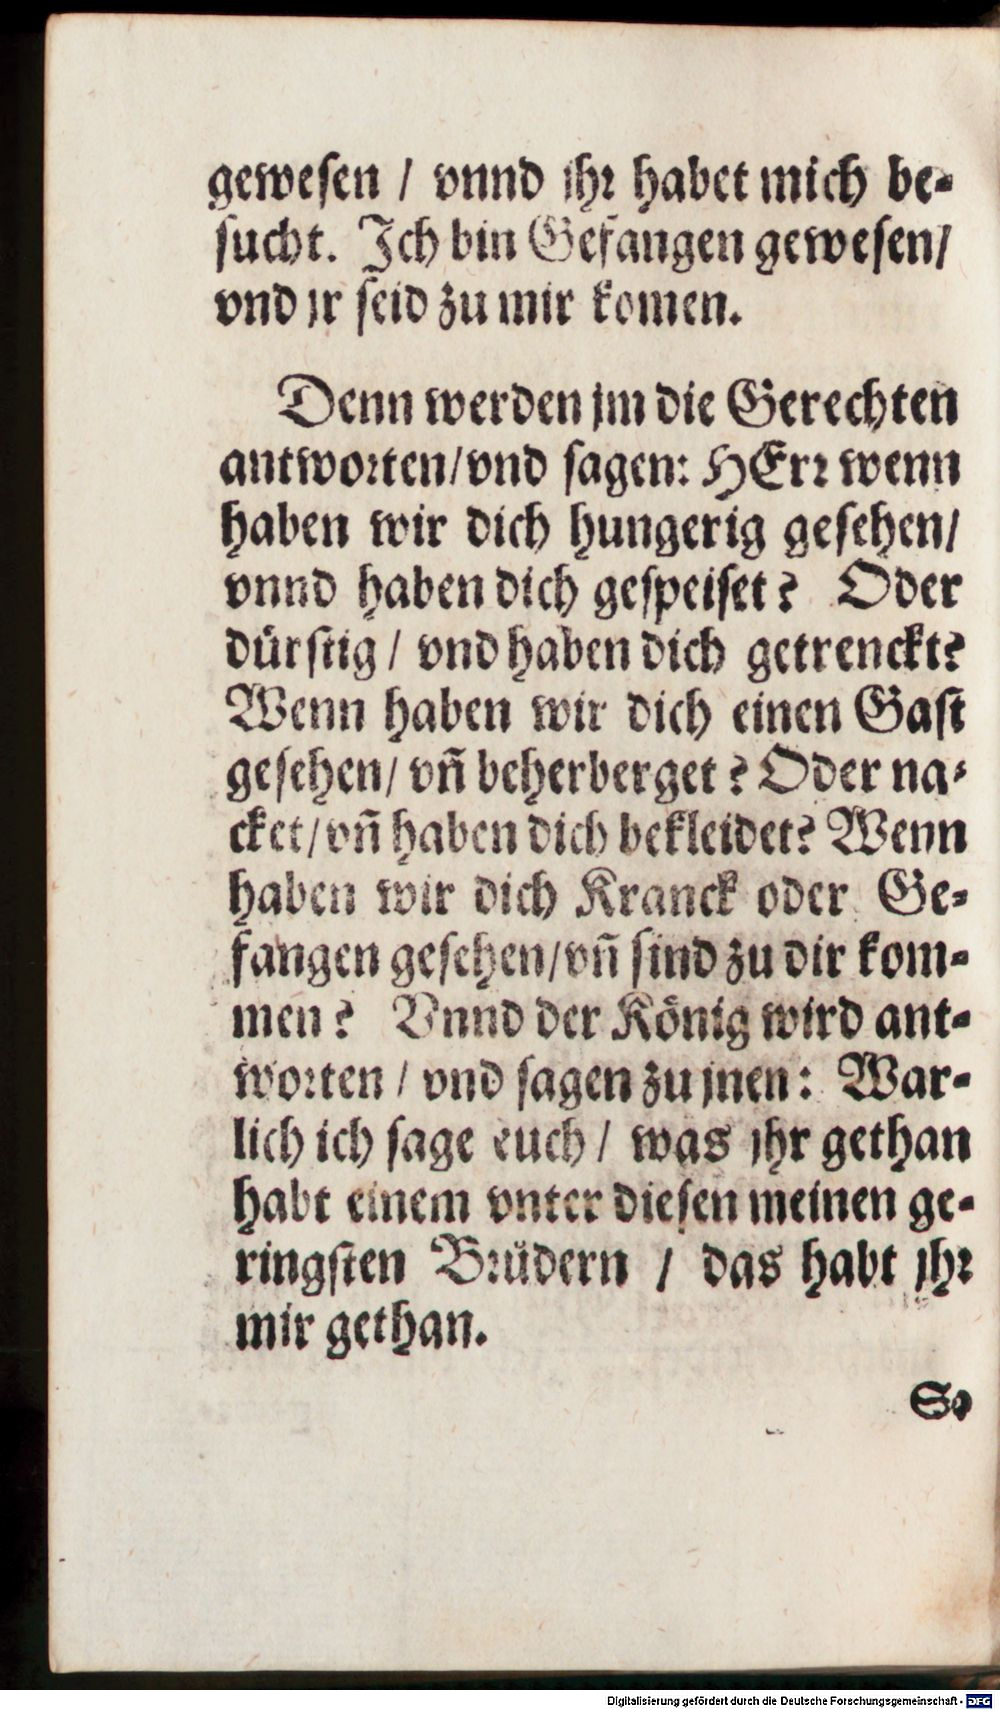 gewesen / vnnd jhr habet mich be-
sucht. Ich bin Gefangen gewesen/
vnd jr seid zu mir komen.
Denn werden jm die Gerechten
antworten/vnd sagen: HErr wenn
haben wir dich hungerig gesehen/
vnnd haben dich gespeiset? Oder
dürstig / vnd haben dich getrenckt?
Wenn haben wir dich einen Gast
gesehen/ vñ beherberget? Oder na-
cket/vñ haben dich bekleidet? Wenn
haben wir dich Kranck oder Ge-
fangen gesehen/vñ sind zu dir kom-
men? Vnnd der König wird ant-
worten / vnd sagen zu jnen: War-
lich ich sage euch / was jhr gethan
habt einem vnter diesen meinen ge-
ringsten Brüdern / das habt jhr
mir gethan.
So
Digitalisierung gefördert durch die Deutsche Forschungsgemeinschaft - DFG